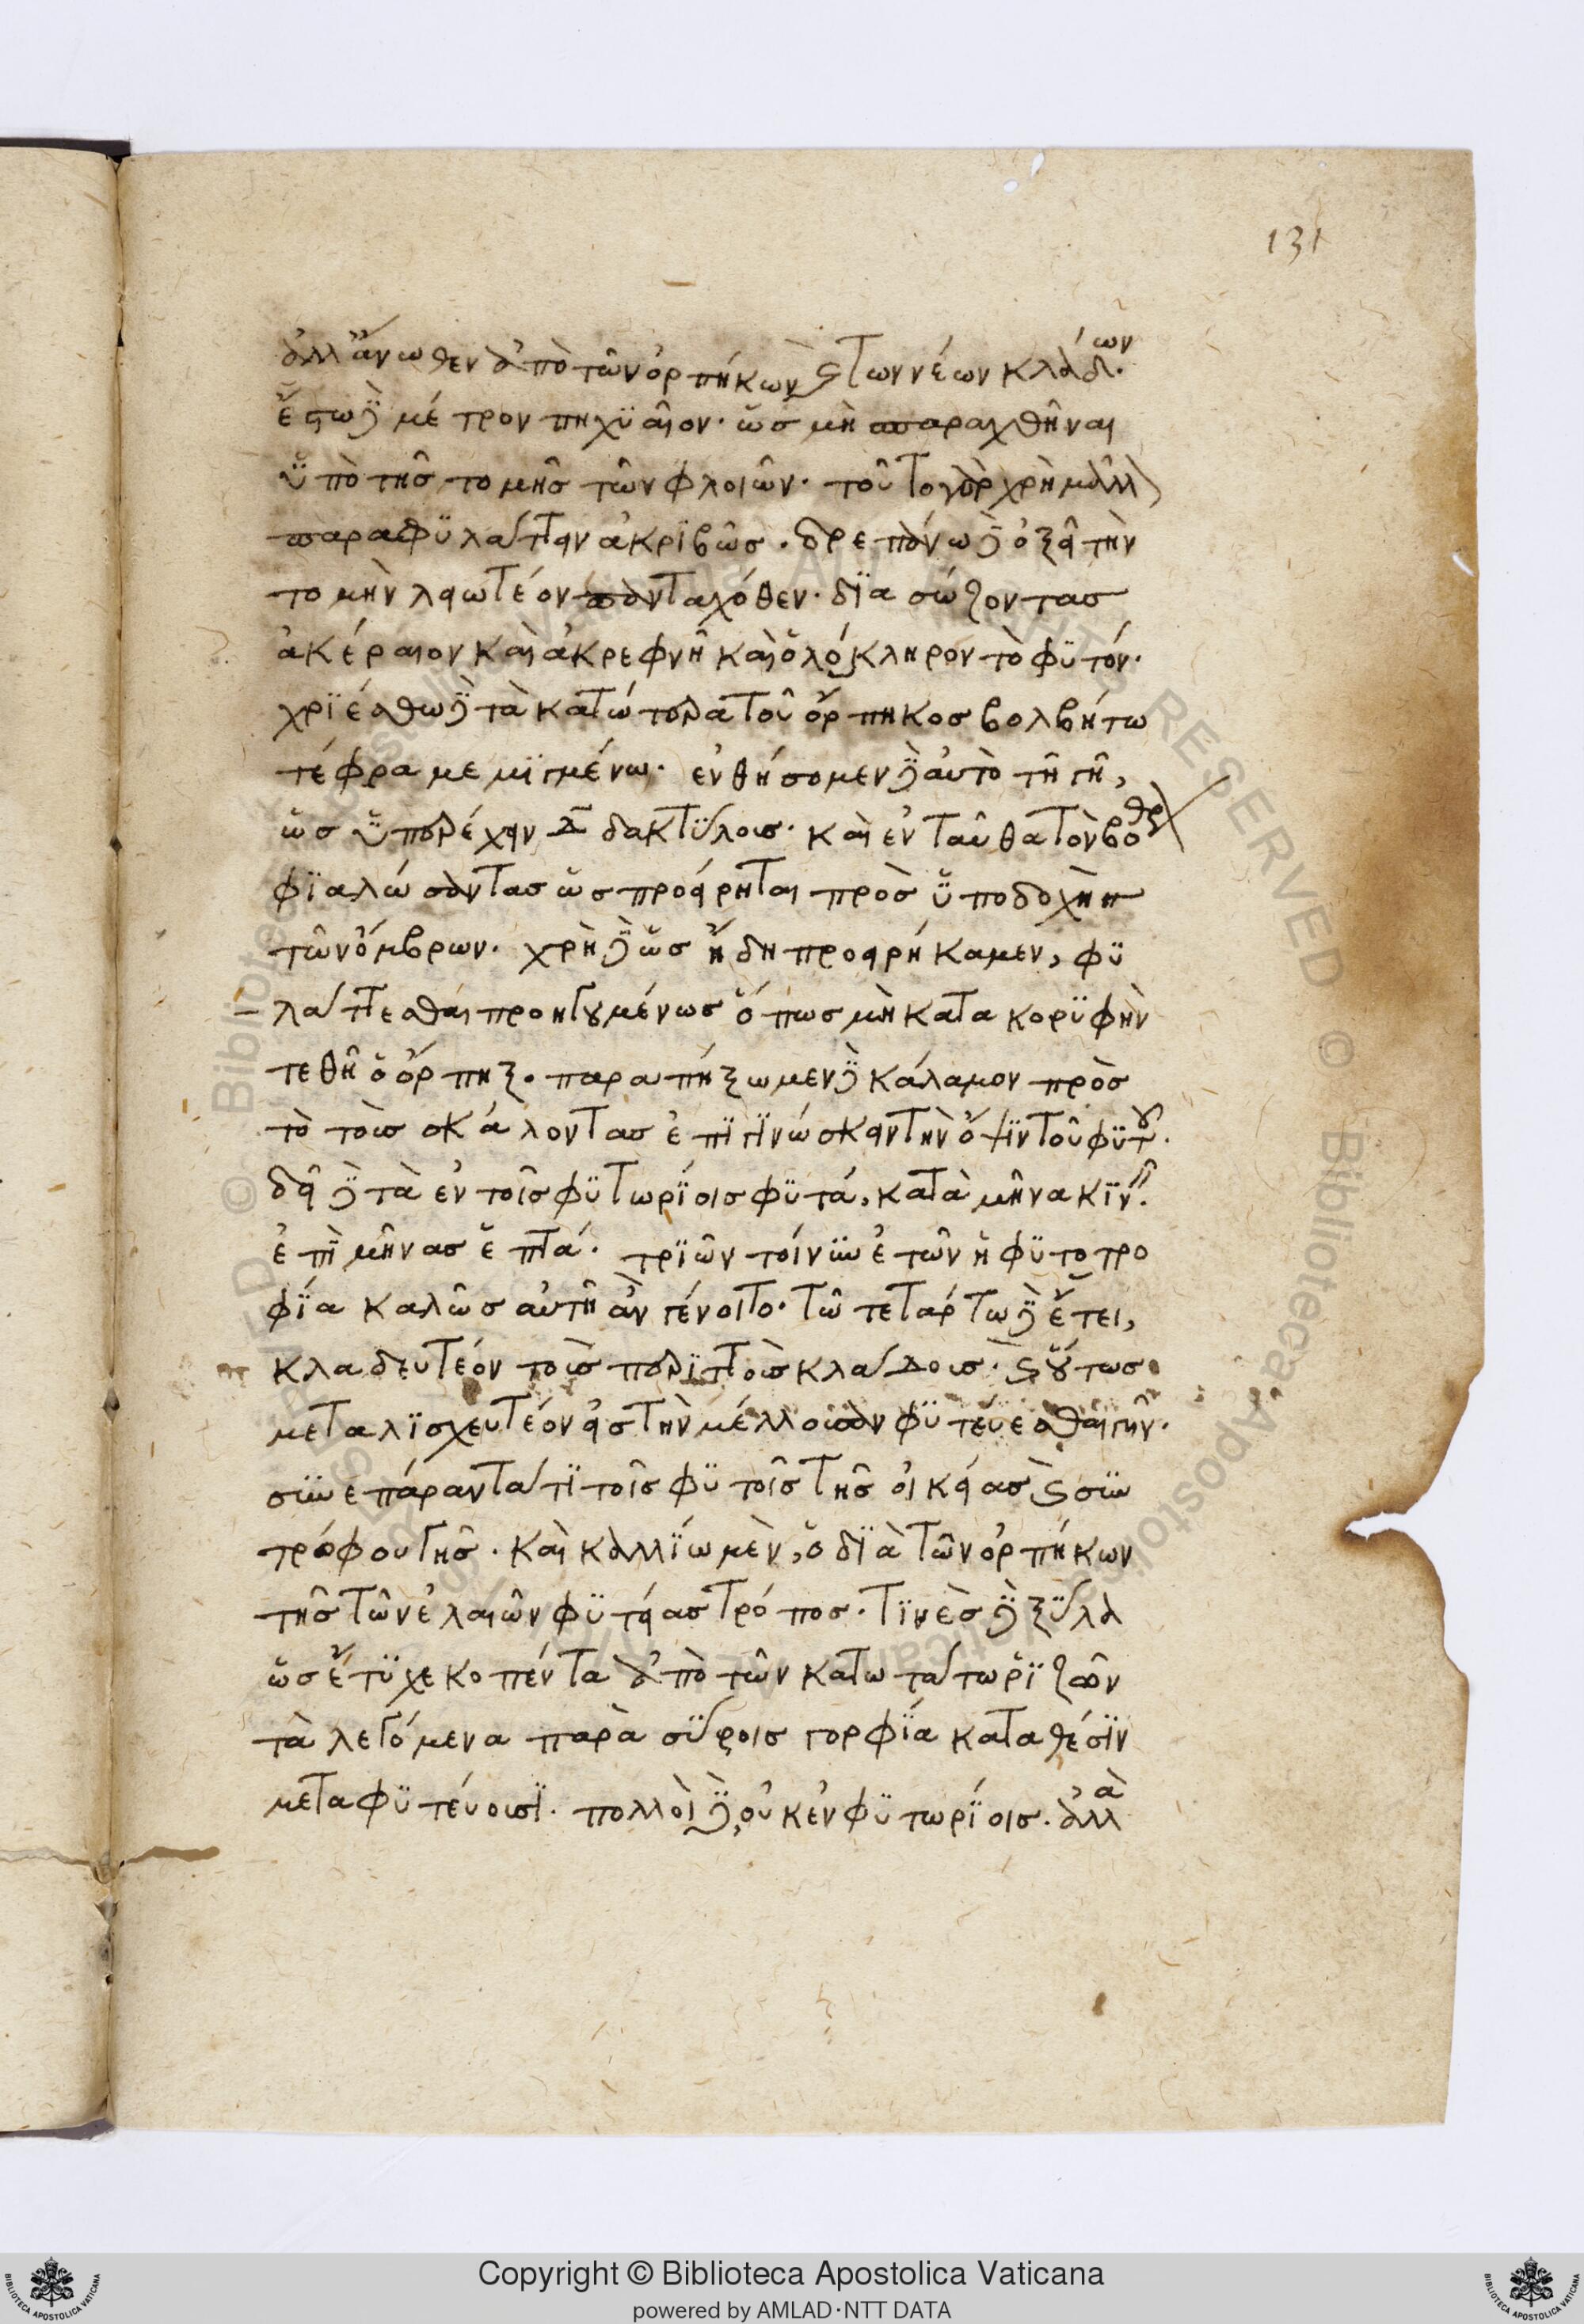 131
ἀλλ' ἄνωθεν ἀπὸ τῶν ὀρπήκων καὶ τῶν νέων κλάδων.
ἔστω δὲ μέτρον πηχϋαῖον· ὡς μὴ παραχθῆναι
ὑπὸ τῆς τομῆς τῶν φλοιῶν· τοῦτο γὰρ χρὴ μᾶλλ
παραφϋλάττειν ἀκρϊβῶς. δρεπάνω δὲ ὀξεῖ τὴν
τομὴν λειωτέον πανταχόθεν· δϊασώζοντας
ἀκέραιον καὶ ἀκρεφνῆ καὶ ὁλόκληρον τὸ φϋτόν.
χρϊέσθω δὲ τὰ κατώτερα τοῦ ὄρπηκος βολβήτω
τέφρα μεμϊγμένω. ἐνθήσομεν δὲ αὐτὸ τῆ γῆ,
ὡς ὑπερέχειν δ δακτϋλοις. καὶ ἐνταῦθα τὸν βόθρ
φϊαλώσαντας ὡς προείρηται πρὸς ὑποδοχὴν
τῶν ὄμβρων. χρὴ δὲ ὡς ἤδη προειρήκαμεν, φϋ
λάττεσθαι προηγουμένως ὅπως μὴ κατα κορϋφὴν
τεθῆ ὁ ὄρπηξ. παραπήξωμεν δὲ κάλαμον πρὸς
τὸ τοὺς σκάλοντας ἐπϊγϊνώσκειν τὴν ὄψϊν τοῦ φϋτοῦ.
δεῖ δὲ τὰ ἐν τοῖς φϋτωρϊοις φϋτά, κατὰ μῆνα κϊνεῖν
ἐπὶ μῆνας ἑπτά. τρϊῶν τοίνϋν ἐτῶν ἡ φϋτοτρο
φϊα καλῶς αὐτὴ ἂν γένοιτο. τῶ τετάρτω δὲ ἔτει,
κλαδευτέον τοὺς περϊττοὺς κλάδους. καὶ οὕτως
μεταλϊσχευτέον εἰς τὴν μέλλουσαν φϋτεύεσθαι γῆν.
σϋνεπάραντά τϊ τοῖς φϋτοῖς τῆς οἰκείας καὶ σϋν
τρόφου γῆς. καὶ καλλϊω μὲν, ὁ δϊὰ τῶν ὀρπήκων
τῆς τῶν ἐλαιῶν φϋτείας τρόπος. τϊνὲς δὲ ξϋλα
ὡς ἔτϋχε κοπέντα ἀπὸ τῶν κατωτάτω ῥϊζῶν
τὰ λεγόμενα παρὰ σϋροις γορφϊά καταθέσϊν
μεταφϋτεύουσϊ. πολλοὶ δὲ, οὐκ ἐν φϋτωρϊοις. ἀλλὰ
Copyright © Biblioteca Apostolica Vaticana
powered by AMLAD·NTT DATA